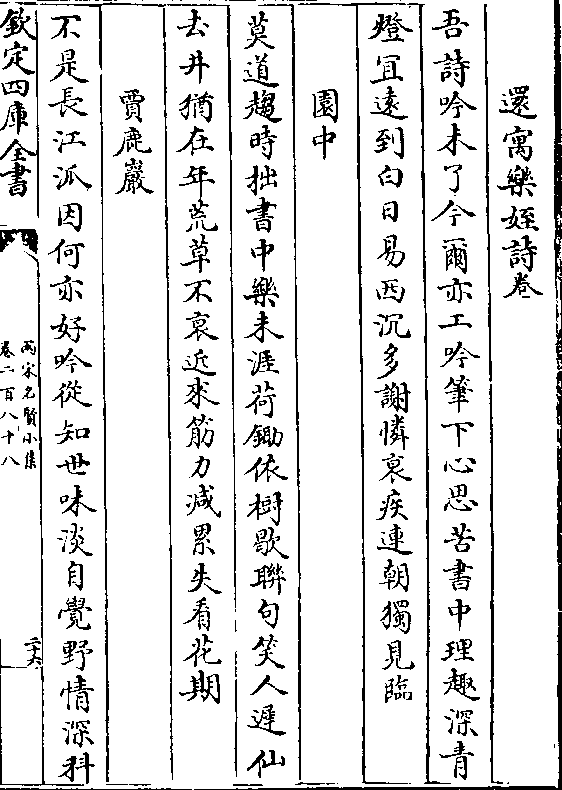 還寓樂姪詩卷
吾詩吟未了今爾亦工吟筆下心思苦書中理趣深青
燈宜遠到白日易西沉多謝憐衰疾連朝獨見臨
園中
莫道趨時拙書中樂未涯荷鋤依樹歇聯句笑人遲仙
去井猶在年荒草不衰近來筋力減累失看花期
賈鹿巖
不是長江派因何亦好吟從知世味淡自覺野情深科
欽定四庫全書
兩宋名賢小集
卷二百八十八
二十六